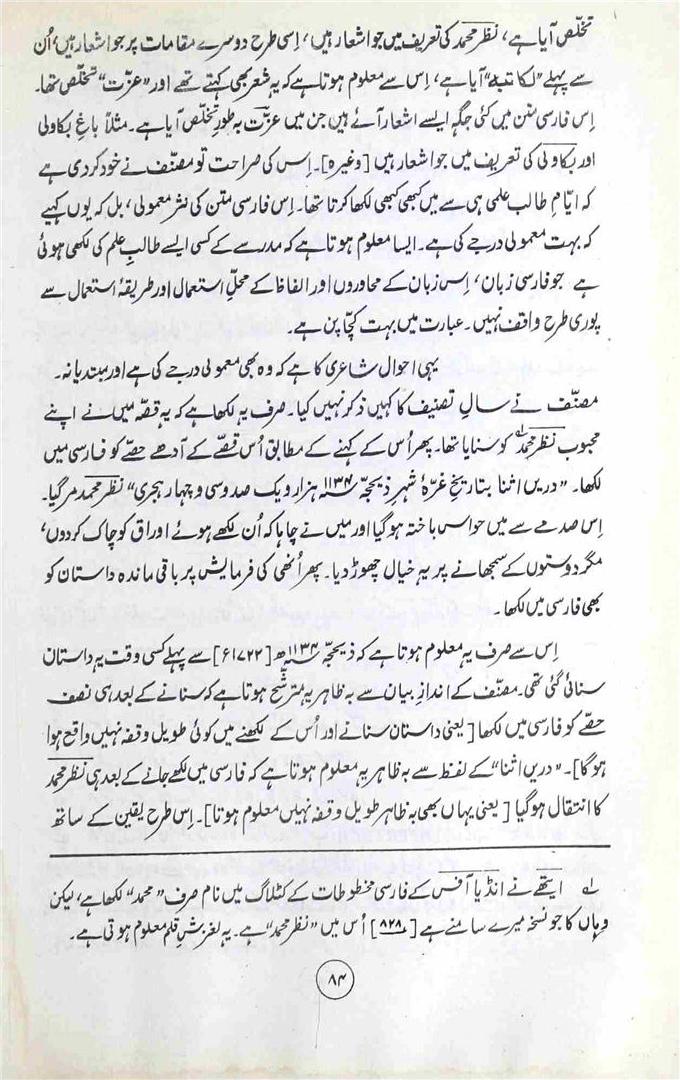 تخلّص آیا ہے، نظر محمد کی تعریف میں جو اشعار ہیں، اِسی طرح دوسرے مقامات پر جو اشعار ہیں، اُن
سے پہلے "لکاتبہ" آیا ہے، اِس سے معلوم ہوتا ہے کہ یہ شعر بھی کہتے تھے اور "عزّت" تخلّص تھا۔
اِس فارسی متن میں کئی جگہ ایسے اشعار آئے ہیں جن میں عزّت بہ طورِ تخلّص آیا ہے۔ مثلاً باغِ بکاولی
اور بکاولی کی تعریف میں جو اشعار ہیں [وغیرہ]۔ اِس کی صراحت تو مصنّف نے خود کر دی ہے
کہ ایّامِ طالب علمی ہی سے میں کبھی کبھی لکھا کرتا تھا۔ اِس فارسی متن کی نثر معمولی، بل کہ یوں کہیے
کہ بہت معمولی درجے کی ہے۔ ایسا معلوم ہوتا ہے کہ مدرسے کے کسی ایسے طالبِ علم کی لکھی ہوئی
ہے جو فارسی زبان، اِس زبان کے محاوروں اور الفاظ کے محلِّ استعمال اور طریقۂ استعمال سے
پوری طرح واقف نہیں۔ عبارت میں بہت کچّا پن ہے۔
یہی احوال شاعری کا ہے کہ وہ بھی معمولی درجے کی ہے اور مبتدیانہ۔
مصنّف نے سالِ تصنیف کا کہیں ذکر نہیں کیا۔ صرف یہ لکھا ہے کہ یہ قصّہ میں نے اپنے
محبوب نظر محمدؐ کو سنایا تھا۔ پھر اُس کے کہنے کے مطابق اُس قصّے کے آدھے حصّے کو فارسی میں
لکھا۔ "دریں اثنا بتاریخِ غرّۂ شہرِ ذیحجّہ ۱۱۳۴ھ ہزار و یک صد و سی و چہار ہجری" نظر محمد مر گیا۔
اِس صدمے سے میں حواس باختہ ہو گیا اور میں نے چاہا کہ اُن لکھے ہوئے اوراق کو چاک کر دوں،
مگر دوستوں کے سمجھانے پر یہ خیال چھوڑ دیا۔ پھر اُنھی کی فرمایش پر باقی ماندہ داستان کو
بھی فارسی میں لکھا۔
اِس سے صرف یہ معلوم ہوتا ہے کہ ذیحجّہ ۱۱۳۴ھ [۱۷۲۲ء] سے پہلے کسی وقت یہ داستان
سنائی گئی تھی۔ مصنّف کے اندازِ بیان سے بہ ظاہر یہ مترشّح ہوتا ہے کہ سنانے کے بعد ہی نصف
حصّے کو فارسی میں لکھا [یعنی داستان سنانے اور اُس کے لکھنے میں کوئی طویل وقفہ نہیں واقع ہوا
ہوگا]۔ "دریں اثنا" کے لفظ سے بہ ظاہر یہ معلوم ہوتا ہے کہ فارسی میں لکھے جانے کے بعد ہی نظر محمد
کا انتقال ہوگیا [یعنی یہاں بھی بہ ظاہر طویل وقفہ نہیں معلوم ہوتا]۔ اِس طرح یقین کے ساتھ
لہ ایتھے نے انڈیا آفس کے فارسی مخطوطات کے کٹلاگ میں نام صرف "محمد" لکھا ہے، لیکن
وہاں کا جو نسخہ میرے سامنے ہے [۸۲۸] اُس میں "نظر محمد" ہے۔ یہ لغزشِ قلم معلوم ہوتی ہے۔
۸۴